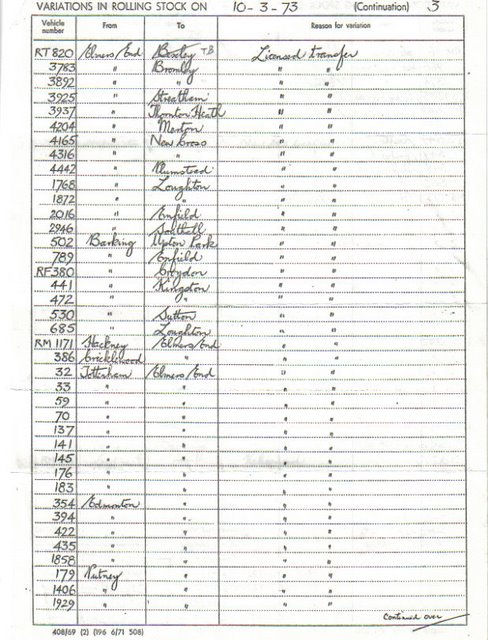 VARIATIONS IN ROLLING STOCK ON 10-3-73 (Continuation) 3
Vehicle number From To Reason for variation
RT 820 Elmers End Bexley TB Licensed transfer
3783 " Bromley " "
3892 " " " "
3925 " Streatham " "
3937 " Thornton Heath " "
4204 " Merton " "
4165 " New Cross " "
4316 " " " "
4442 " Plumstead " "
1768 " Loughton " "
1872 " " " "
2016 " Enfield " "
2946 " Southall " "
502 Barking Upton Park " "
789 " Enfield " "
RF 380 " Croydon " "
441 " Kingston " "
472 " " " "
530 " Sutton " "
685 Loughton " "
RM 1171 Hackney Elmers End " "
386 Cricklewood " " "
32 Tottenham Elmers End " "
33 " " " "
59 " " " "
70 " " " "
137 " " " "
141 " " " "
145 " " " "
176 " " " "
183 " " " "
354 Edmonton " " "
394 " " " "
422 " " " "
435 " " " "
1858 " " " "
179 Putney " " "
1406 " " " "
1929 " " " "
Continued over
408/69 (2) (196 6/71 508)